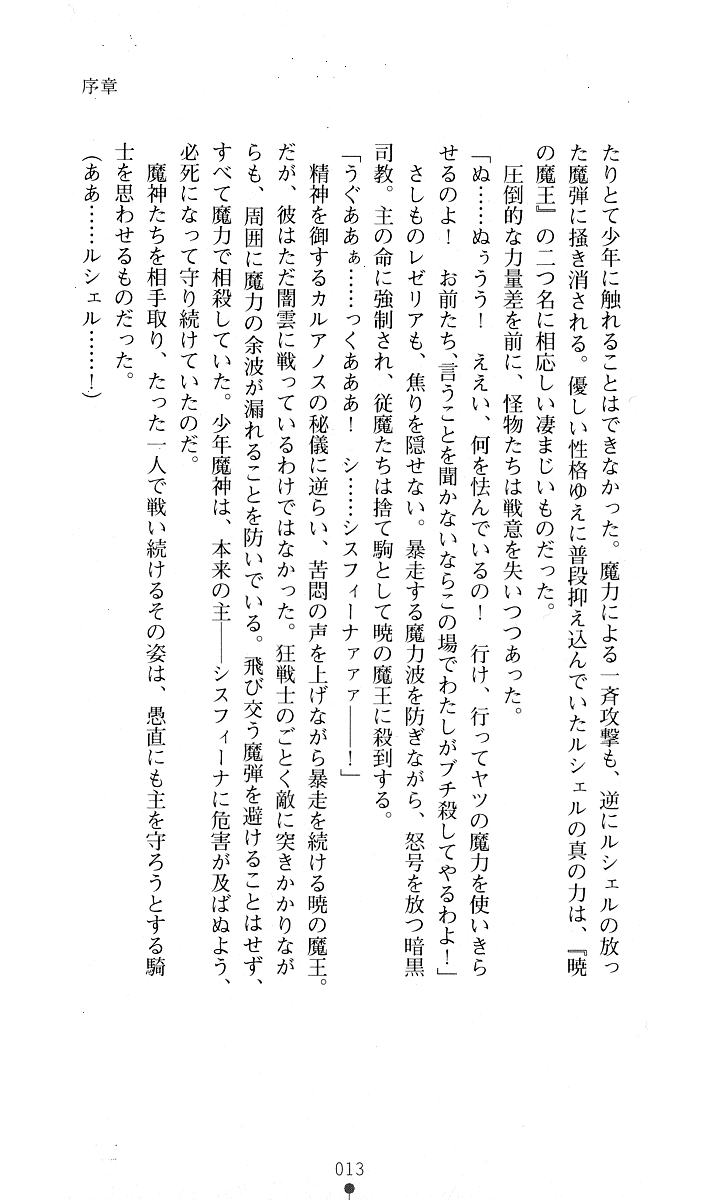 序章
たりとて少年に触れることはできなかった。魔力による一斉攻撃も、逆にルシェルの放っ
た魔弾に掻き消される。優しい性格ゆえに普段抑え込んでいたルシェルの真の力は、『暁
の魔王』の二つ名に相応しい凄まじいものだった。
　圧倒的な力量差を前に、怪物たちは戦意を失いつつあった。
「ぬ……ぬぅうう！　ええい、何を怯んでいるの！　行け、行ってヤツの魔力を使いきら
せるのよ！　お前たち、言うことを聞かないならこの場でわたしがブチ殺してやるわよ！」
　さしものレゼリアも、焦りを隠せない。暴走する魔力波を防ぎながら、怒号を放つ暗黒
司教。主の命に強制され、従魔たちは捨て駒として暁の魔王に殺到する。
「うぐああぁ……っくあああ！　シ……シスフィーナァァァ――！」
　精神を御するカルアノスの秘儀に逆らい、苦悶の声を上げながら暴走を続ける暁の魔王。
だが、彼はただ闇雲に戦っているわけではなかった。狂戦士のごとく敵に突きかかりなが
らも、周囲に魔力の余波が漏れることを防いでいる。飛び交う魔弾を避けることはせず、
すべて魔力で相殺していた。少年魔神は、本来の主――シスフィーナに危害が及ばぬよう、
必死になって守り続けていたのだ。
　魔神たちを相手取り、たった一人で戦い続けるその姿は、愚直にも主を守ろうとする騎
士を思わせるものだった。
（ああ……ルシェル……！）
013